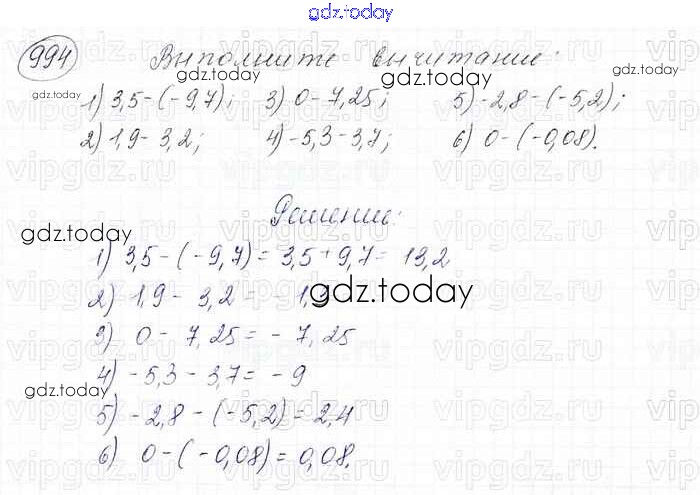 gdz.today
994 Выполните вычитание:
gdz.today
gdz.today
1) 3,5-(-9,7); 3) 0-7,25; 5) -2,8-(-5,2);
2) 1,9-3,2; 4) -5,3-3,7; 6) 0-(-0,08).
Решение:
gdz.today
1) 3,5-(-9,7)=3,5+9,7=13,2
2) 1,9-3,2=-1,
gdz.today
3) 0-7,25=-7,25
4) -5,3-3,7=-9
gdz.today
5) -2,8-(-5,2)=2,4
6) 0-(-0,08)=0,08.
vipgdz.ru